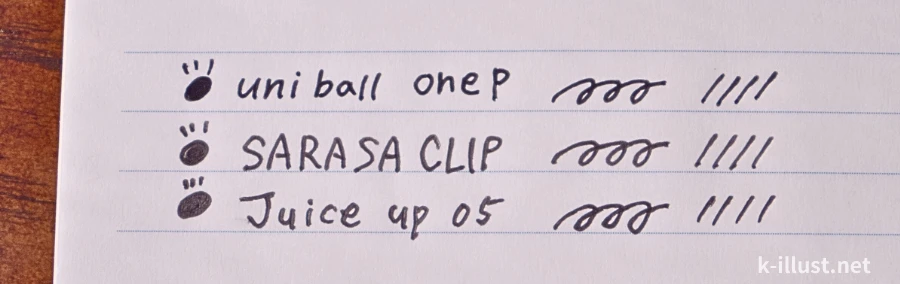 uni ball one P
SARASA CLIP
Juice up 05
k-illust.net